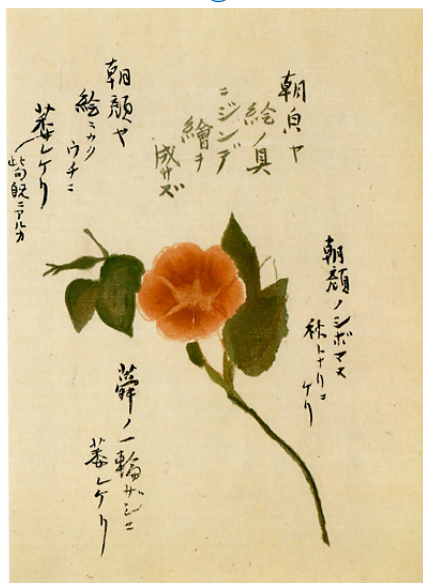 朝皃ヤ
絵ノ具
ニジンデ
繪ヲ
成サズ
朝顔ヤ
絵ニカク
ウチニ
萎レケリ
此句既ニアルカ
朝顔ノシボマヌ
秋トナリニ
ケリ
蕣ノ一輪ザシニ
萎レケリ